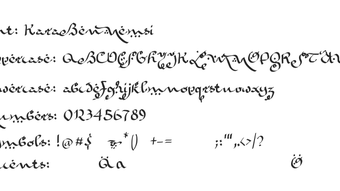 nt: KaraBenNemsi
percase: ABCDEFGHIJKLMNOPQRSTUV
wercase: abcdefghijklmnopqrstuvwxyz
mbers: 0123456789
mbols: !@#$ *() +-= ;:'",.<>/?
cents: Ä a Ö